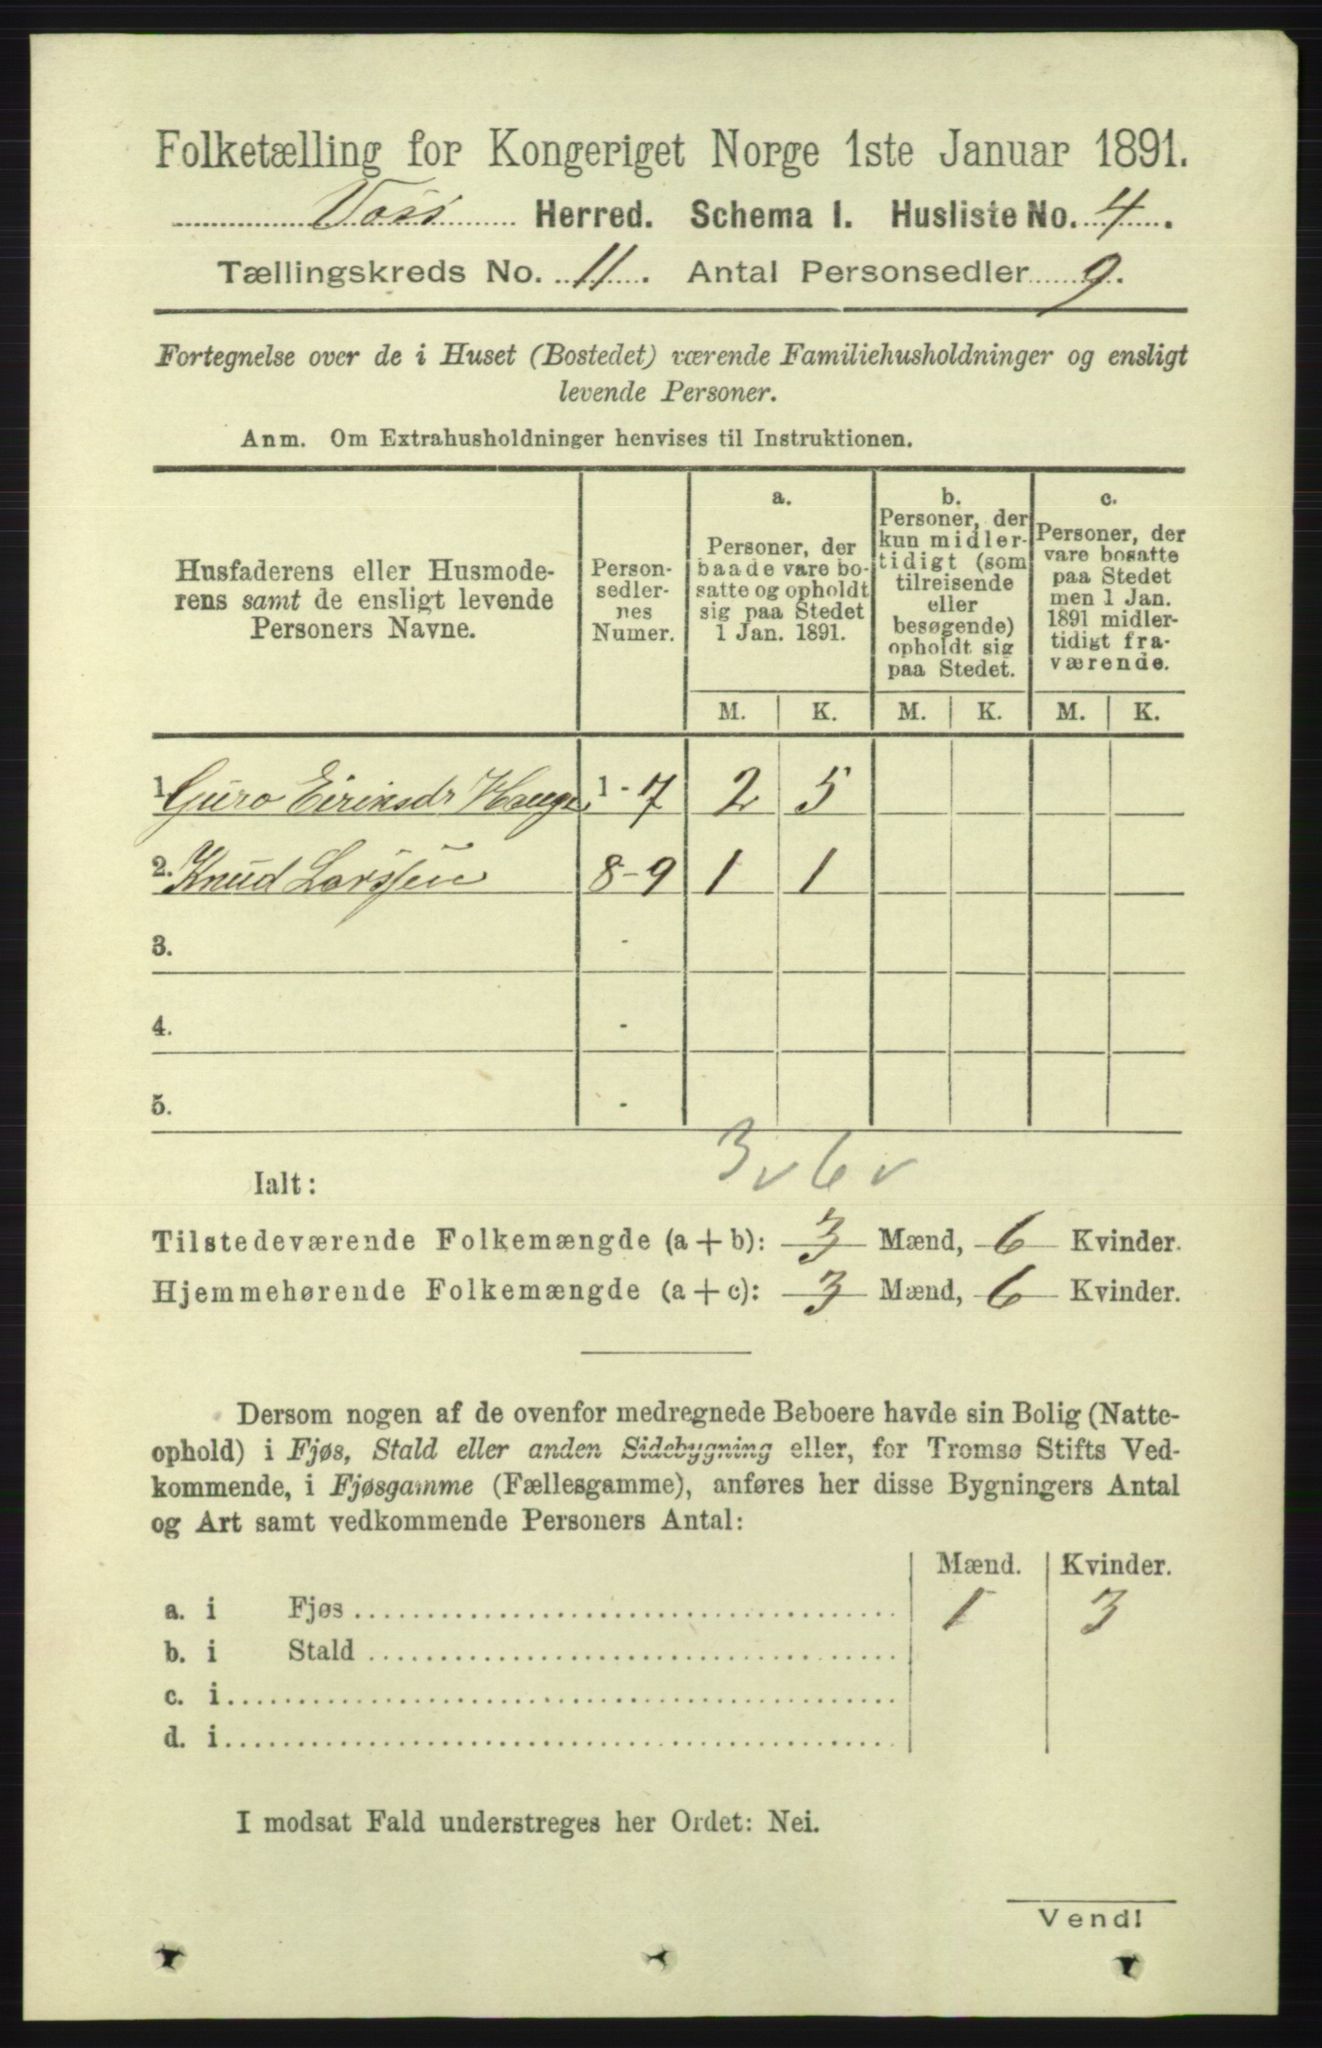 Folketælling for Kongeriget Norge 1ste Januar 1891.
Voss Herred. Schema I. Husliste No. 4.
Tællingskreds No. 11. Antal Personsedler 9.
Fortegnelse over de i Huset (Bostedet) værende Familiehusholdninger og ensligt
levende Personer.
Anm. Om Extrahusholdninger henvises til Instruktionen.
Husfaderens eller Husmode-
rens samt de ensligt levende
Personers Navne.
Person-
sedler-
nes
Numer.
a.
Personer, der
baade vare bo-
satte og opholdt
sig paa Stedet
1 Jan. 1891.
b.
Personer, der
kun midler-
tidigt (som
tilreisende
eller
besøgende)
opholdt sig
paa Stedet.
c.
Personer, der
vare bosatte
paa Stedet
men 1 Jan.
1891 midler-
tidigt fra-
værende.
M. K. M. K. M. K.
1. Guro Eiriksdr Hauge 1-7 2 5
2. Knud Larssen 8-9 1 1
3. -
4. -
5. -
3 v 6 v
Ialt:
Tilstedeværende Folkemængde (a + b): 3 Mænd, 6 Kvinder.
Hjemmehørende Folkemængde (a + c): 3 Mænd, 6 Kvinder.
Dersom nogen af de ovenfor medregnede Beboere havde sin Bolig (Natte-
ophold) i Fjøs, Stald eller anden Sidebygning eller, for Tromsø Stifts Ved-
kommende, i Fjøsgamme (Fællesgamme), anføres her disse Bygningers Antal
og Art samt vedkommende Personers Antal:
Mænd. Kvinder.
a. i Fjøs 1 3
b. i Stald
c. i
d. i
I modsat Fald understreges her Ordet: Nei.
Vend!